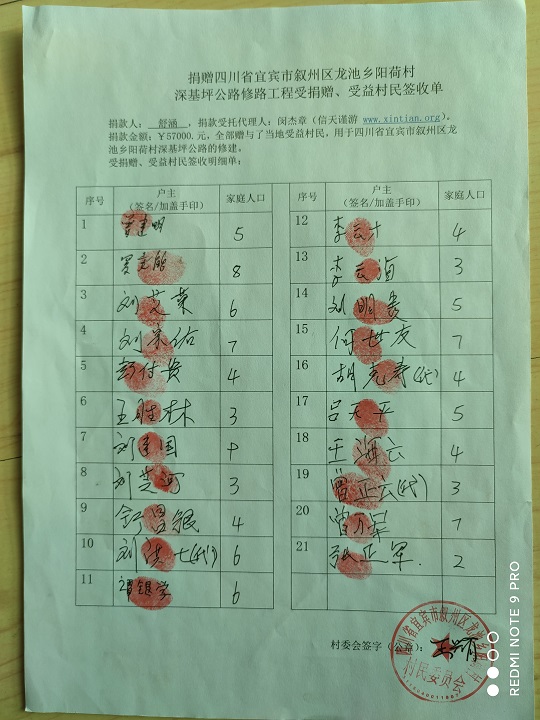 捐赠四川省宜宾市叙州区龙池乡阳荷村
深基坪公路修路工程受捐赠、受益村民签收单
捐款人： 舒涵 ，捐款受托代理人：闵杰章（信天谨游 www.xintian.org）。
捐款金额：￥57000.元，全部赠与了当地受益村民，用于四川省宜宾市叙州区龙
池乡阳荷村深基坪公路的修建。
受捐赠、受益村民签收明细单：
序号 户主（签名/加盖手印） 家庭人口
1 5
2 8
3 刘芝荣 6
4 7
5 4
6 王胜林 3
7 刘国
8 刘芝河 3
9 4
10 刘 (代) 6
11 6
序号 户主（签名/加盖手印） 家庭人口
12 李云 4
13 李云 3
14 刘明 5
15 何世友 7
16 胡克寿(代) 4
17 吕天平 5
18 王海云 4
19 曾正云(代) 3
20 曾小军 7
21 张正军. 2
村委会签字（公章）：
四川省宜宾市叙州区龙池乡阳荷村
村民委员会
REDMI NOTE 9 PRO